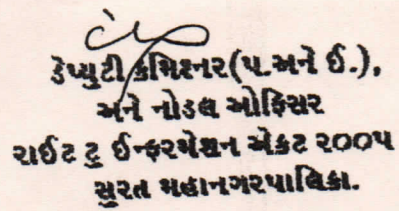 ડેપ્યુટી કમિશ્નર(પ.અને ઈ.),
અને નોડલ ઓફિસર
રાઈટ ટુ ઈન્ફરમેશન એકટ ૨૦૦૫
સુરત મહાનગરપાલિકા.